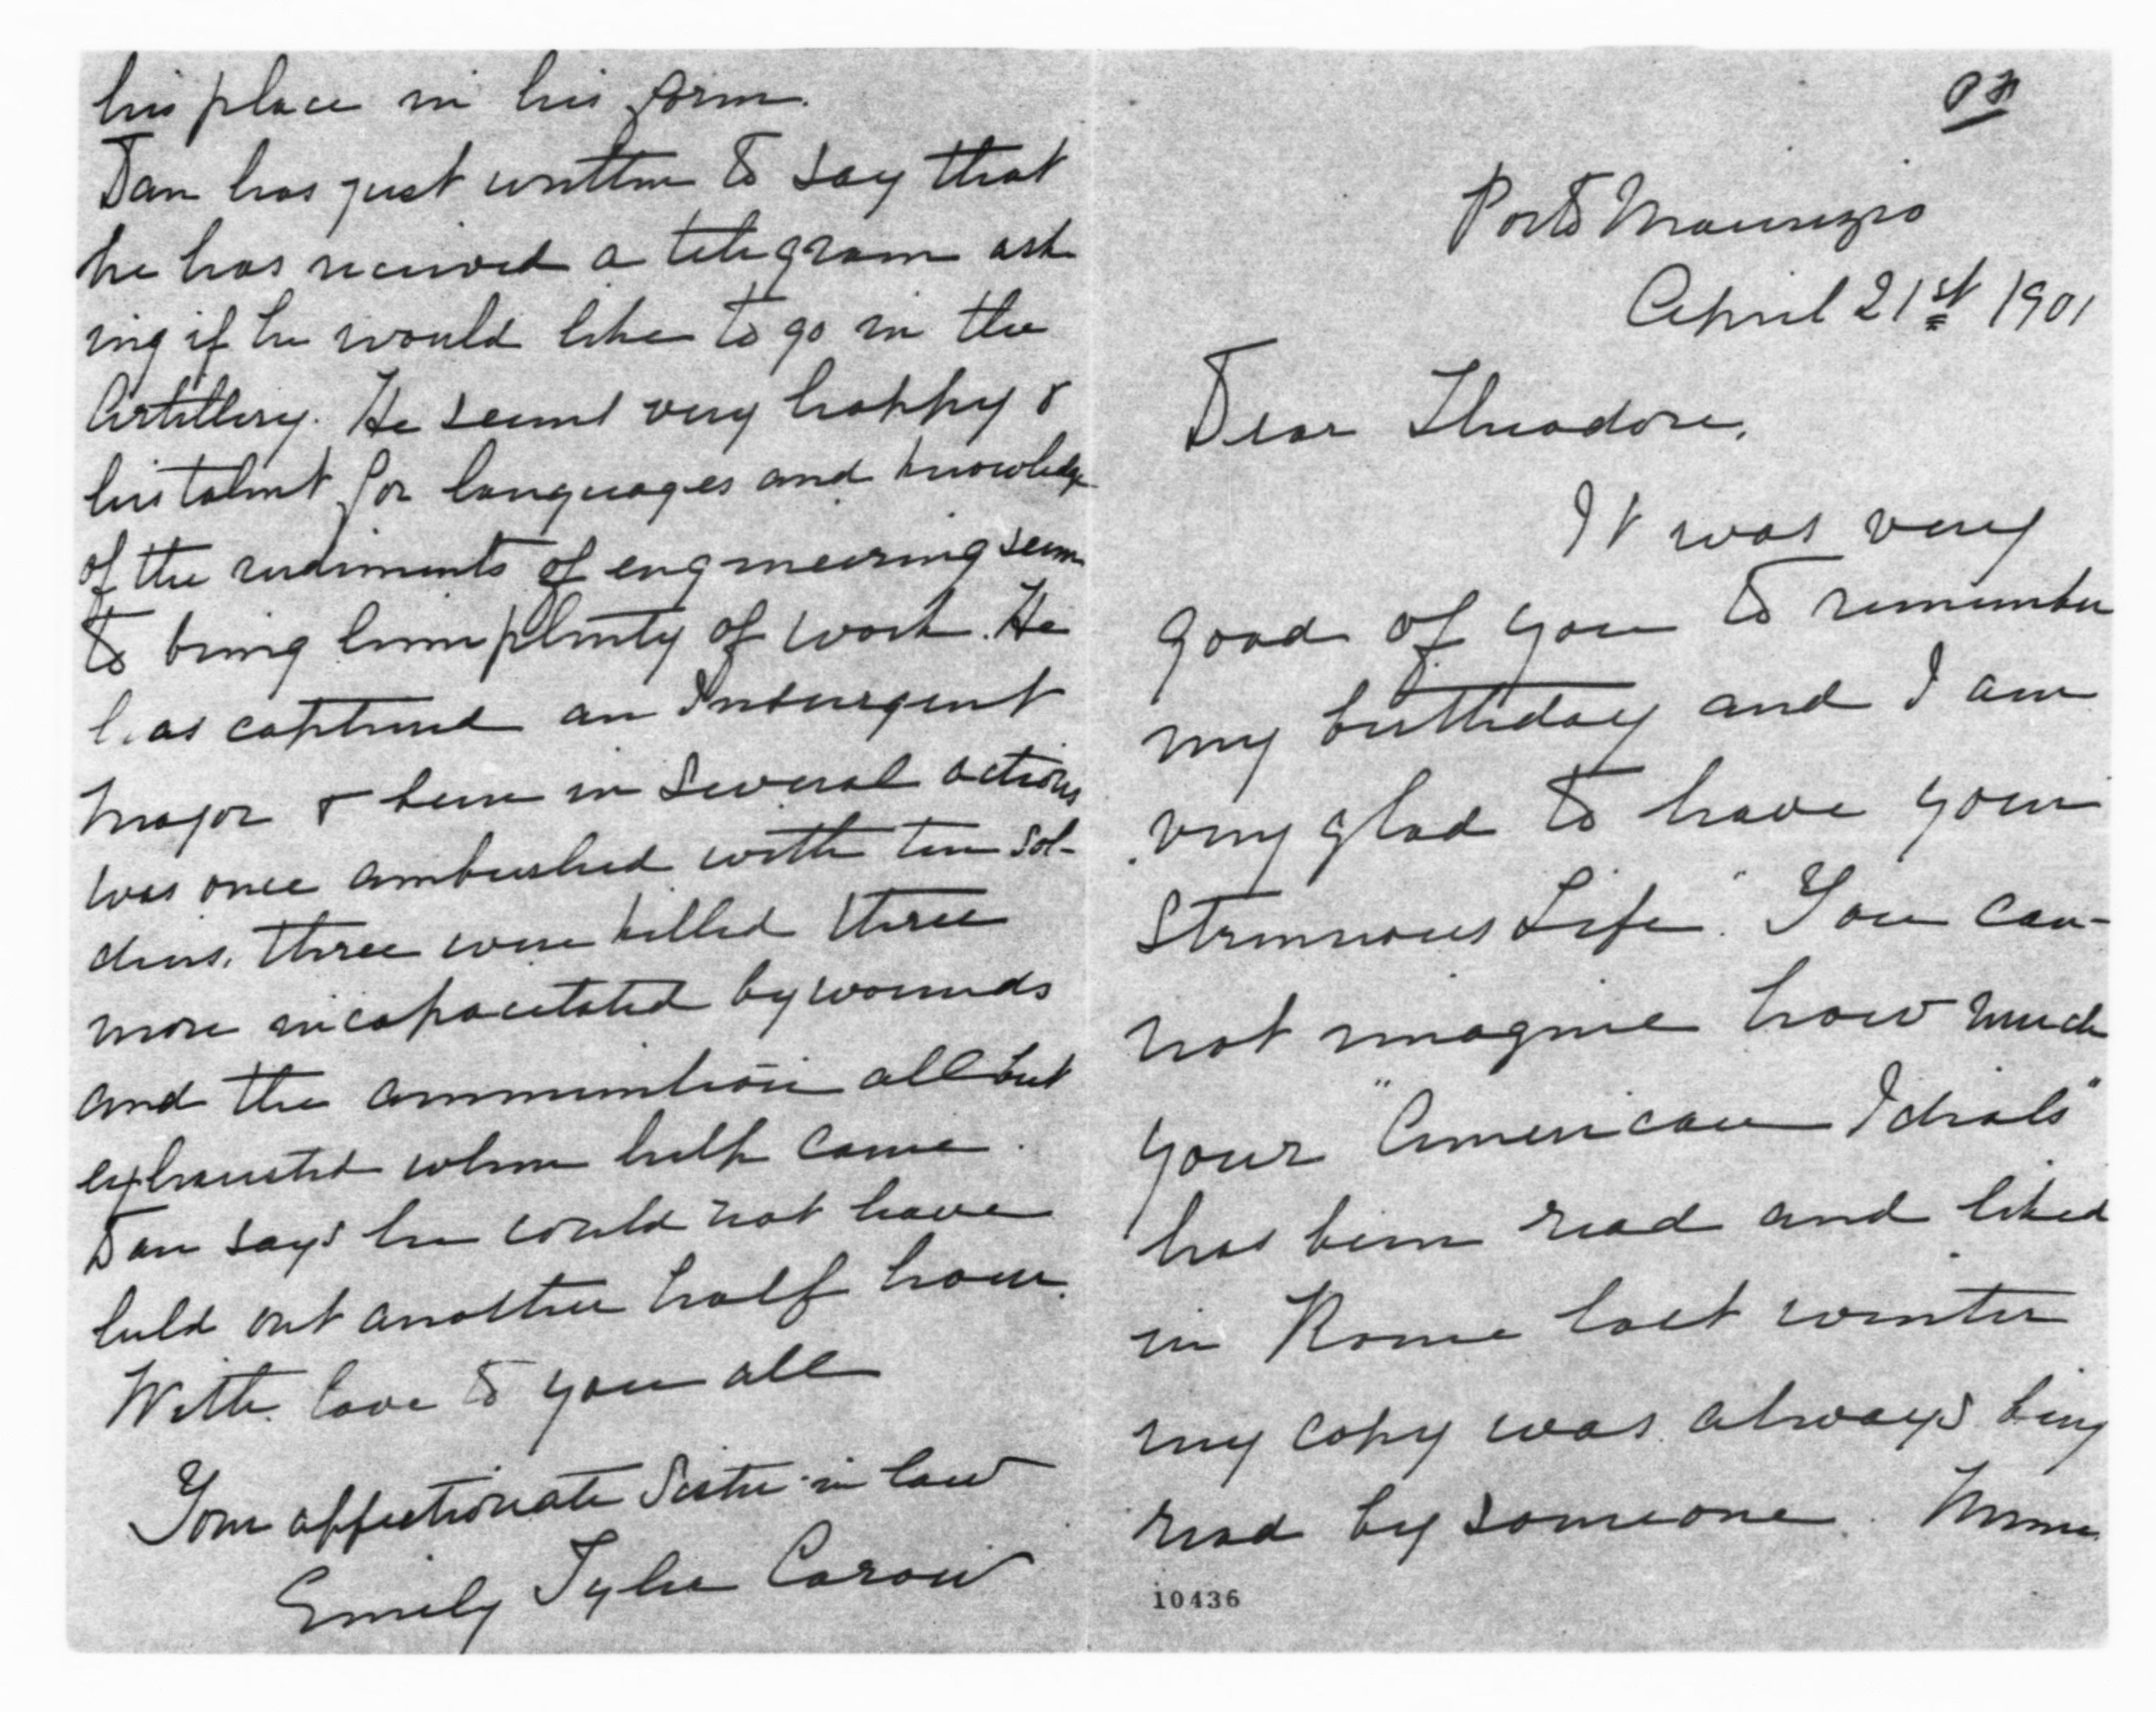 Porto Maurizio
April 21st 1901
Dear Theodore,
It was very
good of you to remember
my birthday and I am
very glad to have your
Strenuous Life". You can-
not imagine how much
your "American Ideals"
has been read and liked
in Rome last winter
my copy was always being
read by someone.
10436
his place in his form.
Dan has just written to say that
he has received a telegram ask
ing if he would like to go in the
Artillery. He seems very happy &
his talent for languages and knowledge
of the rudiments of engineering seem
to bring him plenty of work. He
has captured an Insurgent
Major & been in several actions
was once ambushed with ten sol-
diers. three were killed three
more incapacitated by wounds
and the ammunition all but
exhausted when help came.
Dan says he could not have
held out another half hour.
With love to you all
Your affectionate Sister in law
Emily Tyler Carow